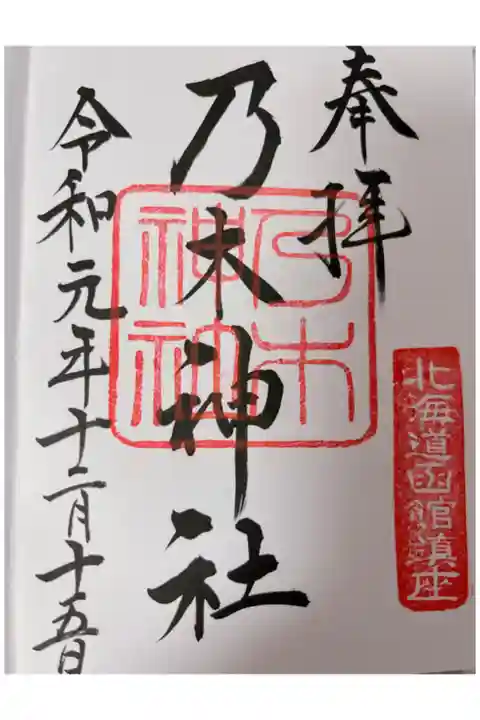 奉拝
北海道函館鎮座
乃木神社
乃木神社
令和元年十二月十五日